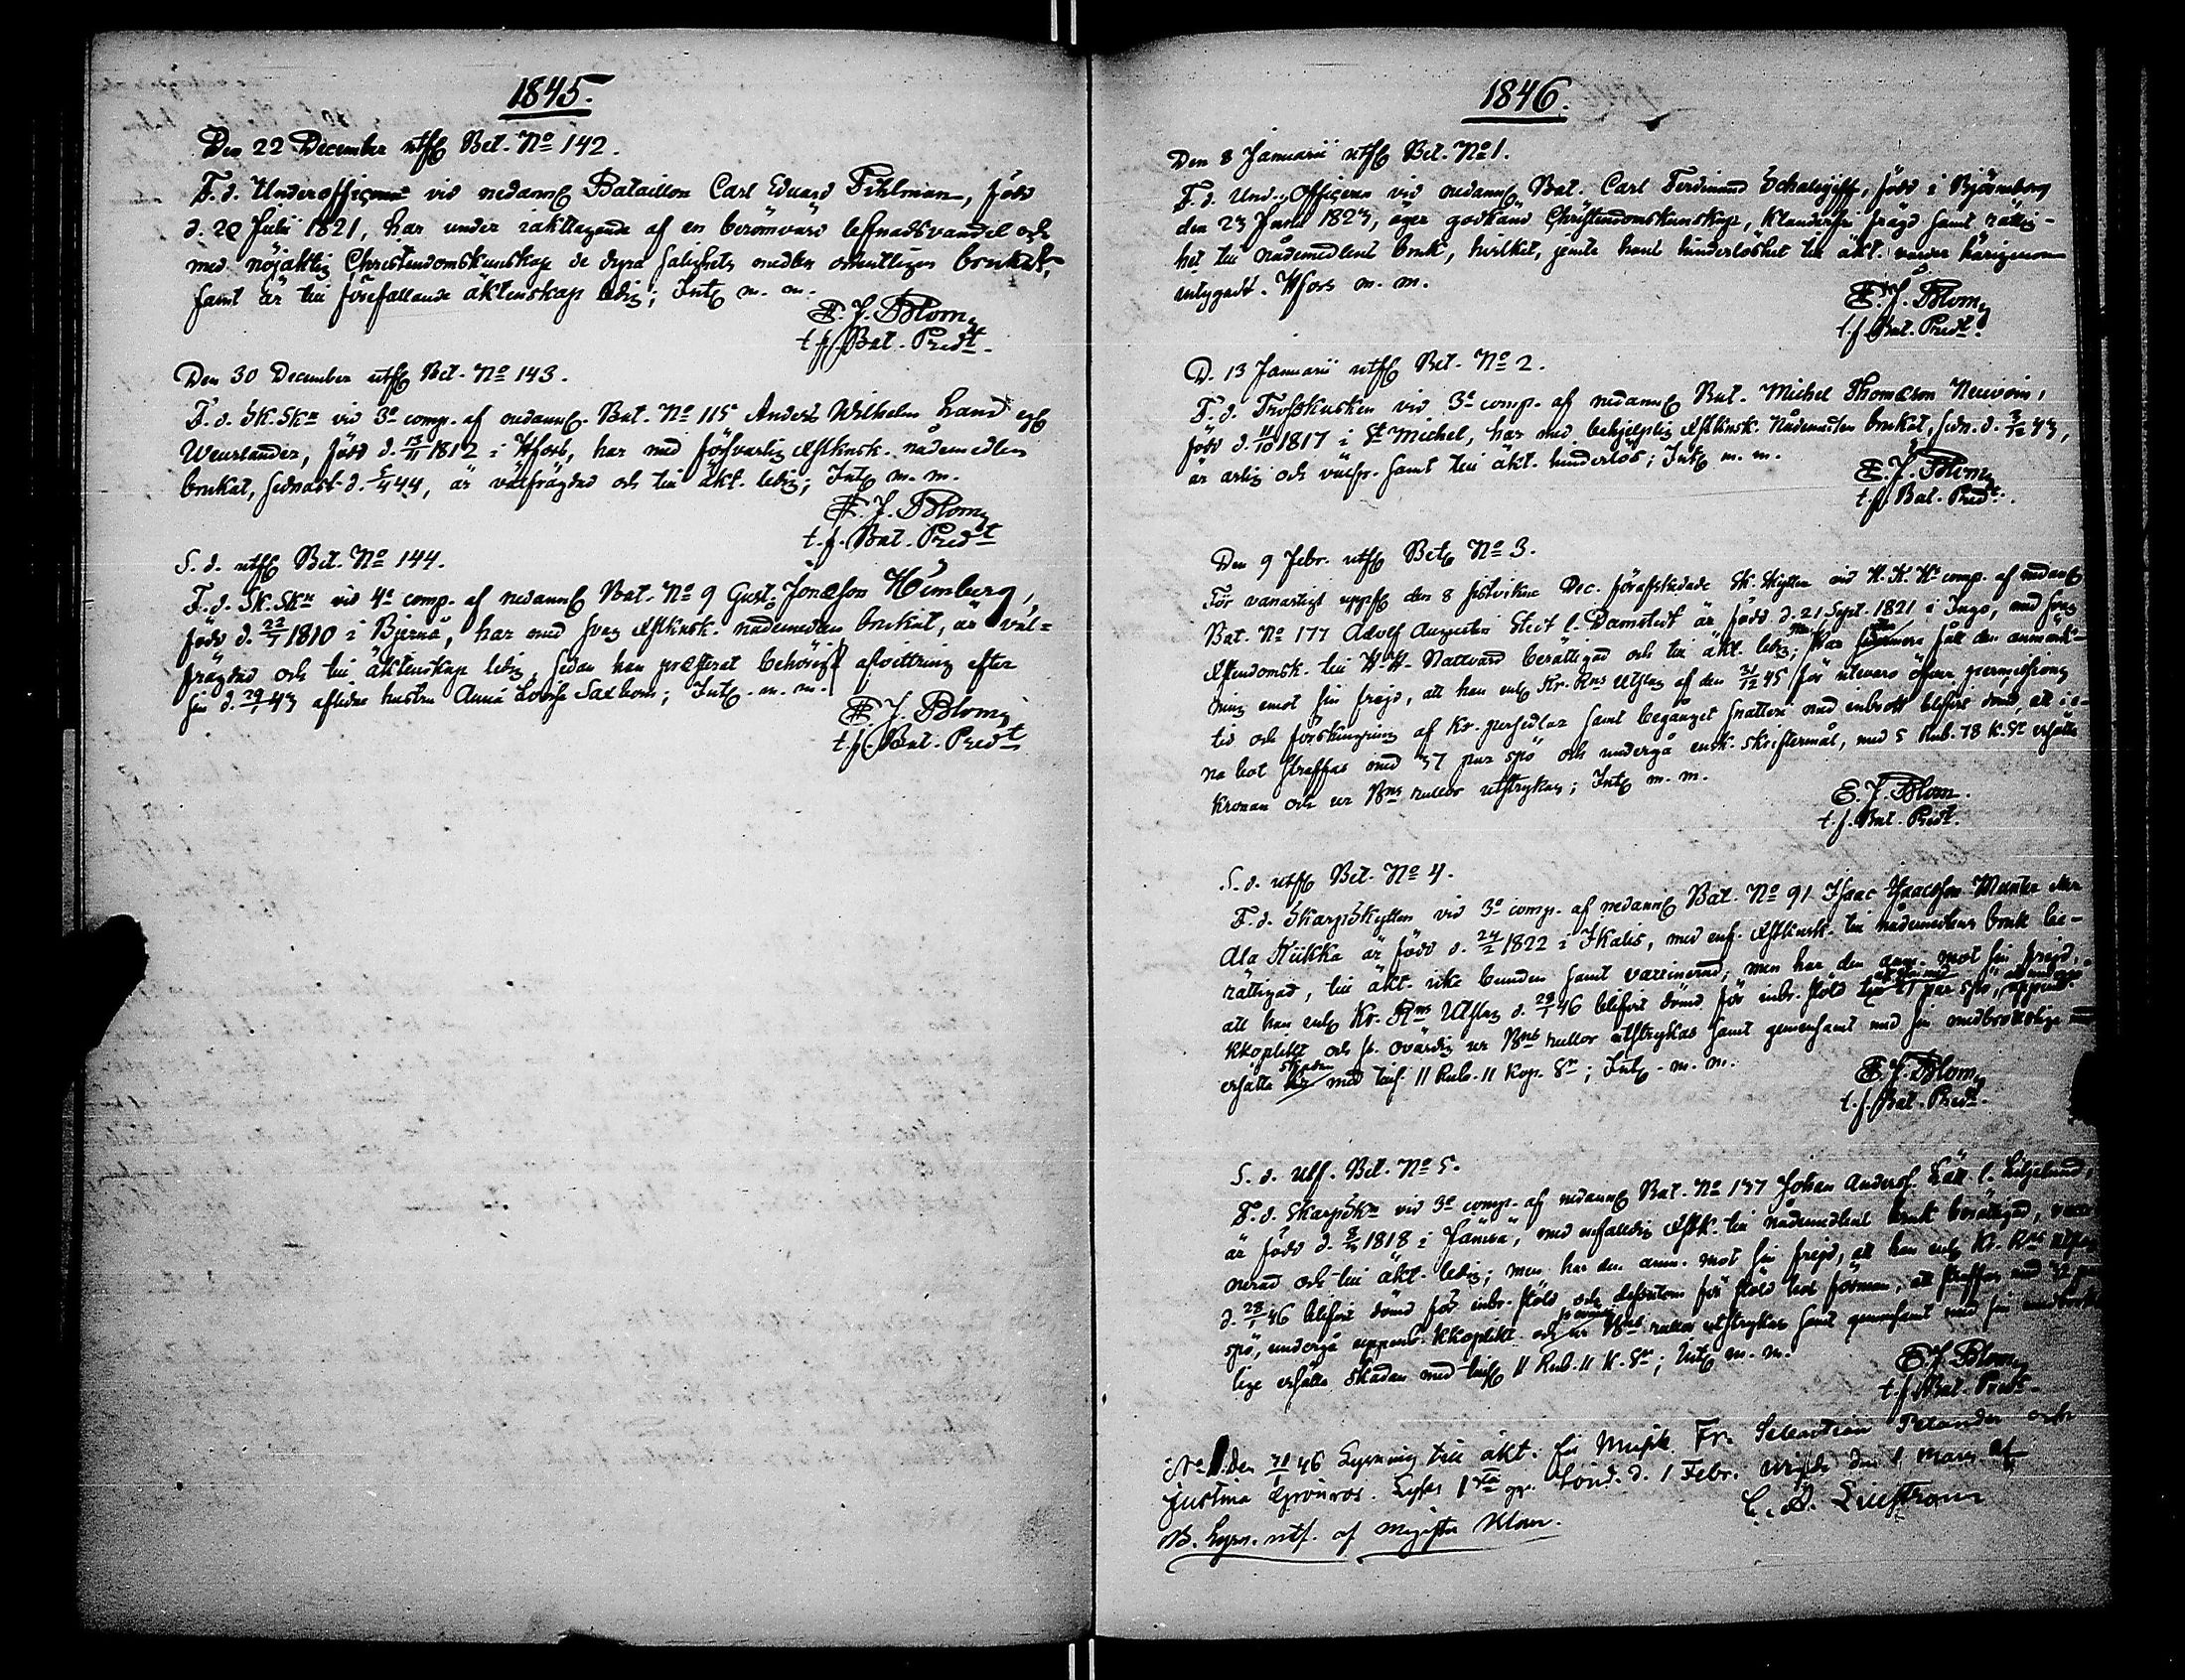 1845.
Den 22 December utf. Bet. No 142.
F.d. Underofficeren vid nedann. Bataillon Carl Eduard Fihlman, född
d. 20 Julii 1821, har under iakttagande af en berömvärd lefnadsvandel och
med nöjaktig Christendomskunskap de dyra salighets medlen ordentligen brukat,
samt är till förefallande äktenskap ledig; Int. m. m.
E. J. Blom,
t.f. Bat. Predt.
Den 30 December utf. Bet. No 143.
F.d. Sk.Skn vid 3e comp. af nedann. Bat. No 115 Anders Wilhelm Sand
Weurlander, född d. 13/11 1812 i Hfors, har med försvarlig nådemedlen
brukat, sednast d. 5/4 44, är välfrägdad och till äkt. ledig; Int. m. m.
E. J. Blom,
t.f. Bat. Predt
S.d. utf. Bet. No 144.
F.d. Sk.Skn vid 4e comp. af nedann. Bat. No 9 Gust. Jonasson Heimberg,
född d. 22/7 1810 i Bjernå, har med svag nådemedlen brukat, är väl-
frägdad och till äktenskap ledig, sedan han præsterat behörig afvittring efter
sin d. 29/1 43 aflidne hustru Anna Lovisa Saxbom; Int. m. m.
E. J. Blom,
t.f. Bat. Predt
1846.
Den 8 Januarii utf. Bet. No 1.
F.d. Und. Officeren vid nedann. Bat. Carl Ferdinand Schalegiff, född i Björneborg
den 23 Junii 1823, äger godkänd Christendomskunskap, klanderfri frägd samt rättig-
het till nådemedlens bruk, hvilket, jemte hans hinderlöshet till äkt. varder härigenom
intygadt. Hfors m. m.
E. J. Blom,
t.f. Bat. Predt.
D. 13 Januarii utf. Bet. No 2.
F.d. Trosskusken vid 3e comp. af nedann. Bat. Michel Thomasson Neuvoin,
född d. 11/10 1817 i St Michel, har med behjelplig nådemedlen brukat, sedn. d. 3/12 43,
är ärlig och välfr. samt till äkt. hinderlös; Int. m. m.
E. J. Blom,
t.f. Bat. Predt.
Den 9 Febr. utf. Bet. No 3.
För vanartigt uppf. den 8 sistvikne Dec. förafskedade Sk.Skytten vid comp. af nedann.
Bat. No 177 Adolf Augustin Sted l. Damstedt är född d. 21 Sept. 1821 i Ingo, med svag
till H.H. Nattvard berättigad och till äkt. ledig; men har den anmärk-
ning emot sin frejd, att han enl. Kr. Rns Utslag af den 31/12 45 för utevaro öfver permissions
tid och förskingring af Kr. persedlar samt begånget snatteri med inbrott blifvit dömd, att i e-
na bot straffas med 37 par spö och undergå ensk. skriftermål, med 5 Rub. 78 K. Sr ersätta
Kronan och ur Bns rullor utstrykas; Int. m. m.
E. J. Blom.
t.f. Bat. Predt.
S.d. utf. Bet. No 4.
F.d. SkarpSkytten vid 3e comp. af nedann. Bat. No 91 Isaac Isaacsson eller
Ala Kiikka är född d. 24/2 1822 i Ikalis, med enf. till nådemedlens bruk be-
rättigad, till äkt. icke bunden samt vaccinerad; men har den anm. mot sin frejd,
att han enl. Kr. Rns Utslag d. 28/1 46 blifvit dömd för inbr. stöld 21 par spö, uppenb.
kkoplikt och s. ovärdig ur Bns rullor utstrykas samt gemensamt med sin medbrottslige
ersätta skadan med tills. 11 Rub. 11 Kop. Sr; Int. m. m.
E. J. Blom,
t.f. Bat. Predt.
S.d. utf. Bet. No 5.
F.d. SkarpSkn vid 3e comp. af nedann. Bat. No 137 Johan Anderss. Lätt l. Liljelund,
är född d. 1818 i Jämsä, med enfaldig till nådemedlens bruk berättigad, vacci-
nerad och till äkt. ledig; men har den anm. mot sin frejd, att han enl. Kr. Rns Utslag
d. 28/1 46 blifvit dömd för inbr. stöld och dessutom för stöld hos förman, att straffas med 32 par
spö, undergå uppenb. kkoplikt och s. ovärdig ur Bns rullor utstrykas samt gemensamt med sin medbrotts-
lige ersätta skadan med tills. 11 Rub. 11 K. Sr; Int. m. m.
E. J. Blom,
t.f. Bat. Predt.
No 1. Den 31/1 46 Lysning till äkt. för Musik. Fr. Sebastian Pelander och
Justina Grönroos. Lystes 1sta gn. Sönd. d. 1 Febr. den 1 Mars af
C. D. Lilljström
NB. Lysn. utf. af Magister